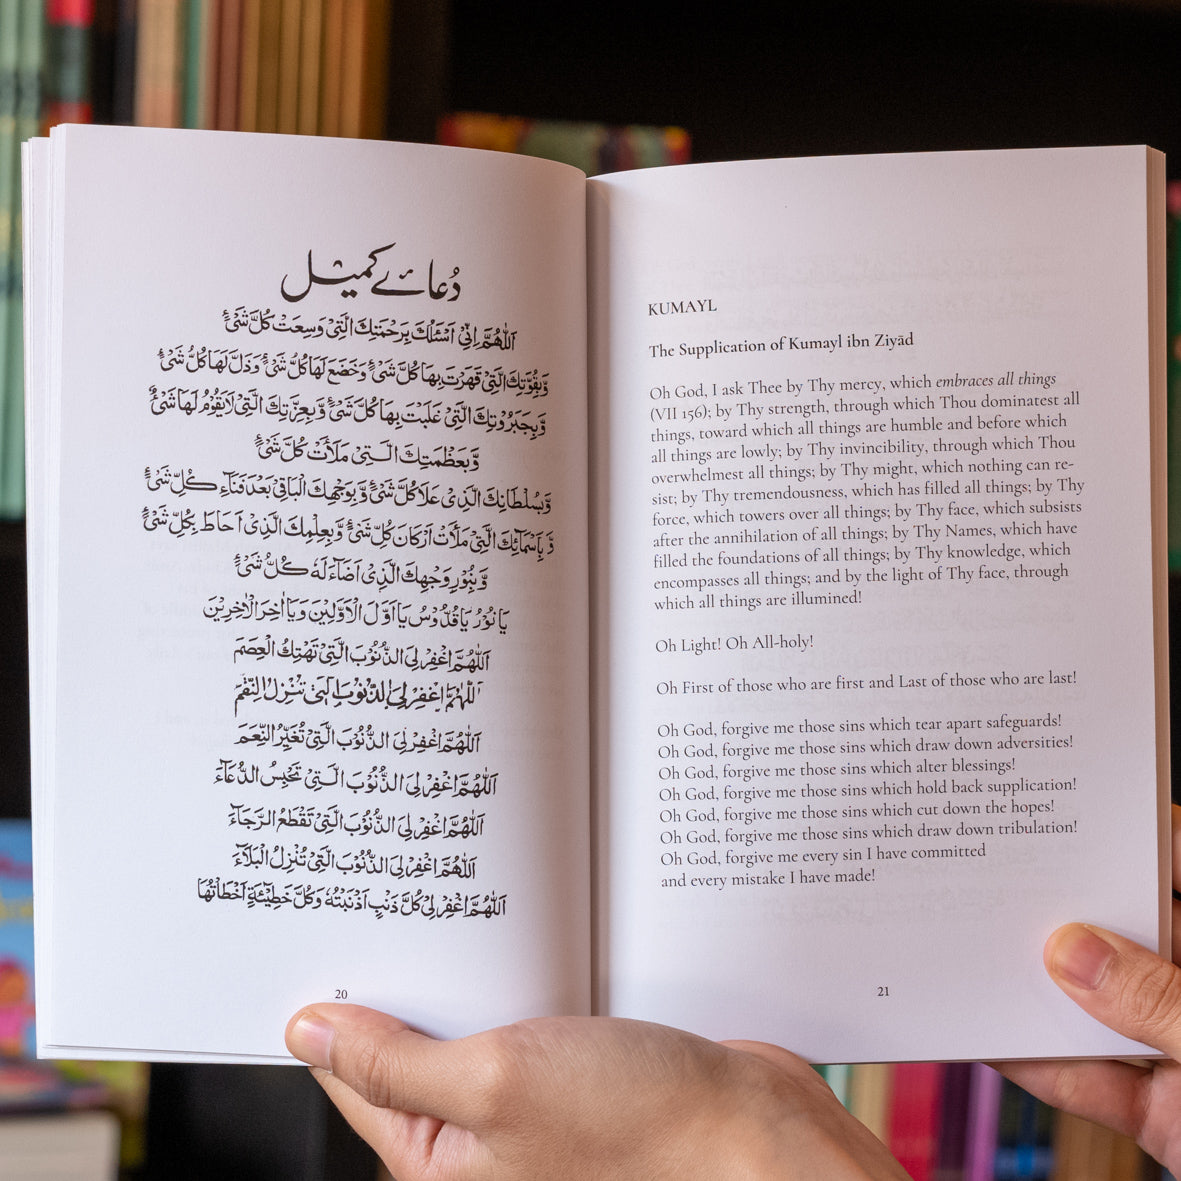 دُعائے کمیل
اَللّٰهُمَّ اِنِّيْ اَسْئَلُكَ بِرَحْمَتِكَ الَّتِيْ وَسِعَتْ كُلَّ شَيْءٍ
وَّبِقُوَّتِكَ الَّتِيْ قَهَرْتَ بِهَا كُلَّ شَيْءٍ وَّخَضَعَ لَهَا كُلُّ شَيْءٍ وَّذَلَّ لَهَا كُلُّ شَيْءٍ
وَّبِجَبَرُوْتِكَ الَّتِيْ غَلَبْتَ بِهَا كُلَّ شَيْءٍ وَّبِعِزَّتِكَ الَّتِيْ لَايَقُوْمُ لَهَا شَيْءٌ
وَّبِعَظَمَتِكَ الَّتِيْ مَلَاَتْ كُلَّ شَيْءٍ
وَّبِسُلْطَانِكَ الَّذِيْ عَلَا كُلَّ شَيْءٍ وَّبِوَجْهِكَ الْبَاقِيْ بَعْدَ فَنَآءِ كُلِّ شَيْءٍ
وَّبِاَسْمَآئِكَ الَّتِيْ مَلَاَتْ اَرْكَانَ كُلِّ شَيْءٍ وَّبِعِلْمِكَ الَّذِيْ اَحَاطَ بِكُلِّ شَيْءٍ
وَّبِنُوْرِ وَجْهِكَ الَّذِيْ اَضَآءَ لَهٗ كُلُّ شَيْءٍ
يَا نُوْرُ يَا قُدُّوْسُ يَا اَوَّلَ الْاَوَّلِيْنَ وَيَا اٰخِرَ الْاٰخِرِيْنَ
اَللّٰهُمَّ اغْفِرْ لِيَ الذُّنُوْبَ الَّتِيْ تَهْتِكُ الْعِصَمَ
اَللّٰهُمَّ اغْفِرْ لِيَ الذُّنُوْبَ الَّتِيْ تُنْزِلُ النِّقَمَ
اَللّٰهُمَّ اغْفِرْ لِيَ الذُّنُوْبَ الَّتِيْ تُغَيِّرُ النِّعَمَ
اَللّٰهُمَّ اغْفِرْ لِيَ الذُّنُوْبَ الَّتِيْ تَحْبِسُ الدُّعَآءَ
اَللّٰهُمَّ اغْفِرْ لِيَ الذُّنُوْبَ الَّتِيْ تَقْطَعُ الرَّجَآءَ
اَللّٰهُمَّ اغْفِرْ لِيَ الذُّنُوْبَ الَّتِيْ تُنْزِلُ الْبَلَآءَ
اَللّٰهُمَّ اغْفِرْ لِيْ كُلَّ ذَنْبٍ اَذْنَبْتُهٗ وَكُلَّ خَطِيْٓئَةٍ اَخْطَاْتُهَا
20
KUMAYL
The Supplication of Kumayl ibn Ziyād
Oh God, I ask Thee by Thy mercy, which embraces all things
(VII 156); by Thy strength, through which Thou dominatest all
things, toward which all things are humble and before which
all things are lowly; by Thy invincibility, through which Thou
overwhelmest all things; by Thy might, which nothing can re-
sist; by Thy tremendousness, which has filled all things; by Thy
force, which towers over all things; by Thy face, which subsists
after the annihilation of all things; by Thy Names, which have
filled the foundations of all things; by Thy knowledge, which
encompasses all things; and by the light of Thy face, through
which all things are illumined!
Oh Light! Oh All-holy!
Oh First of those who are first and Last of those who are last!
Oh God, forgive me those sins which tear apart safeguards!
Oh God, forgive me those sins which draw down adversities!
Oh God, forgive me those sins which alter blessings!
Oh God, forgive me those sins which hold back supplication!
Oh God, forgive me those sins which cut down the hopes!
Oh God, forgive me those sins which draw down tribulation!
Oh God, forgive me every sin I have committed
and every mistake I have made!
21